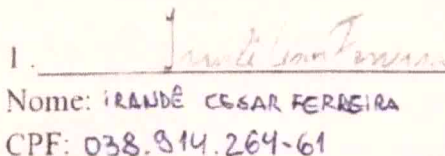 1.
Nome: iRANDÊ CESAR FERREIRA
CPF: 038.914.264-61